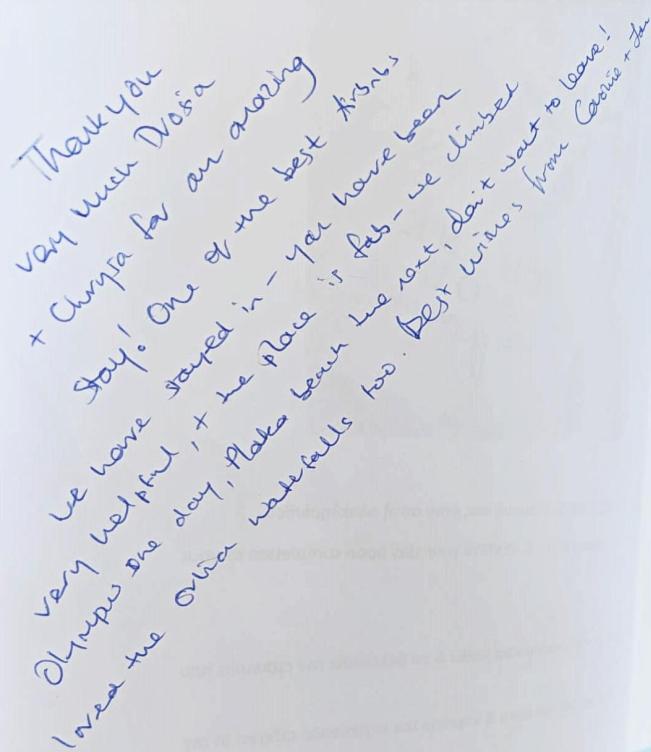 Thank you
very much Drosia
+ Chrysa for an amazing
stay! One of the best Airbnbs
we have stayed in - you have been
very helpful, + the place is fab - we climbed
Olympus one day, Plaka beach the next, don't want to leave!
loved the Orlia waterfalls too. Best wishes from +